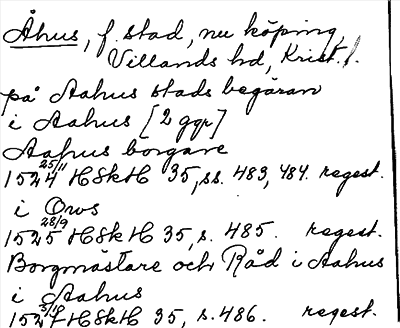 Åhus, f. stad, nu köping,
Villands hd, Krist. l.
på Aahus stads begäran
i Aahus [2 ggr]
Aahus borgare
1524 25/11 HSkH 35, ss. 483, 484. regest.
i Oros
1525 28/9 HSkH 35, s. 485. regest.
Borgmästare och Råd i Aahus
i Aahus
1527 3/10 HSkH 35, s. 486. regest.